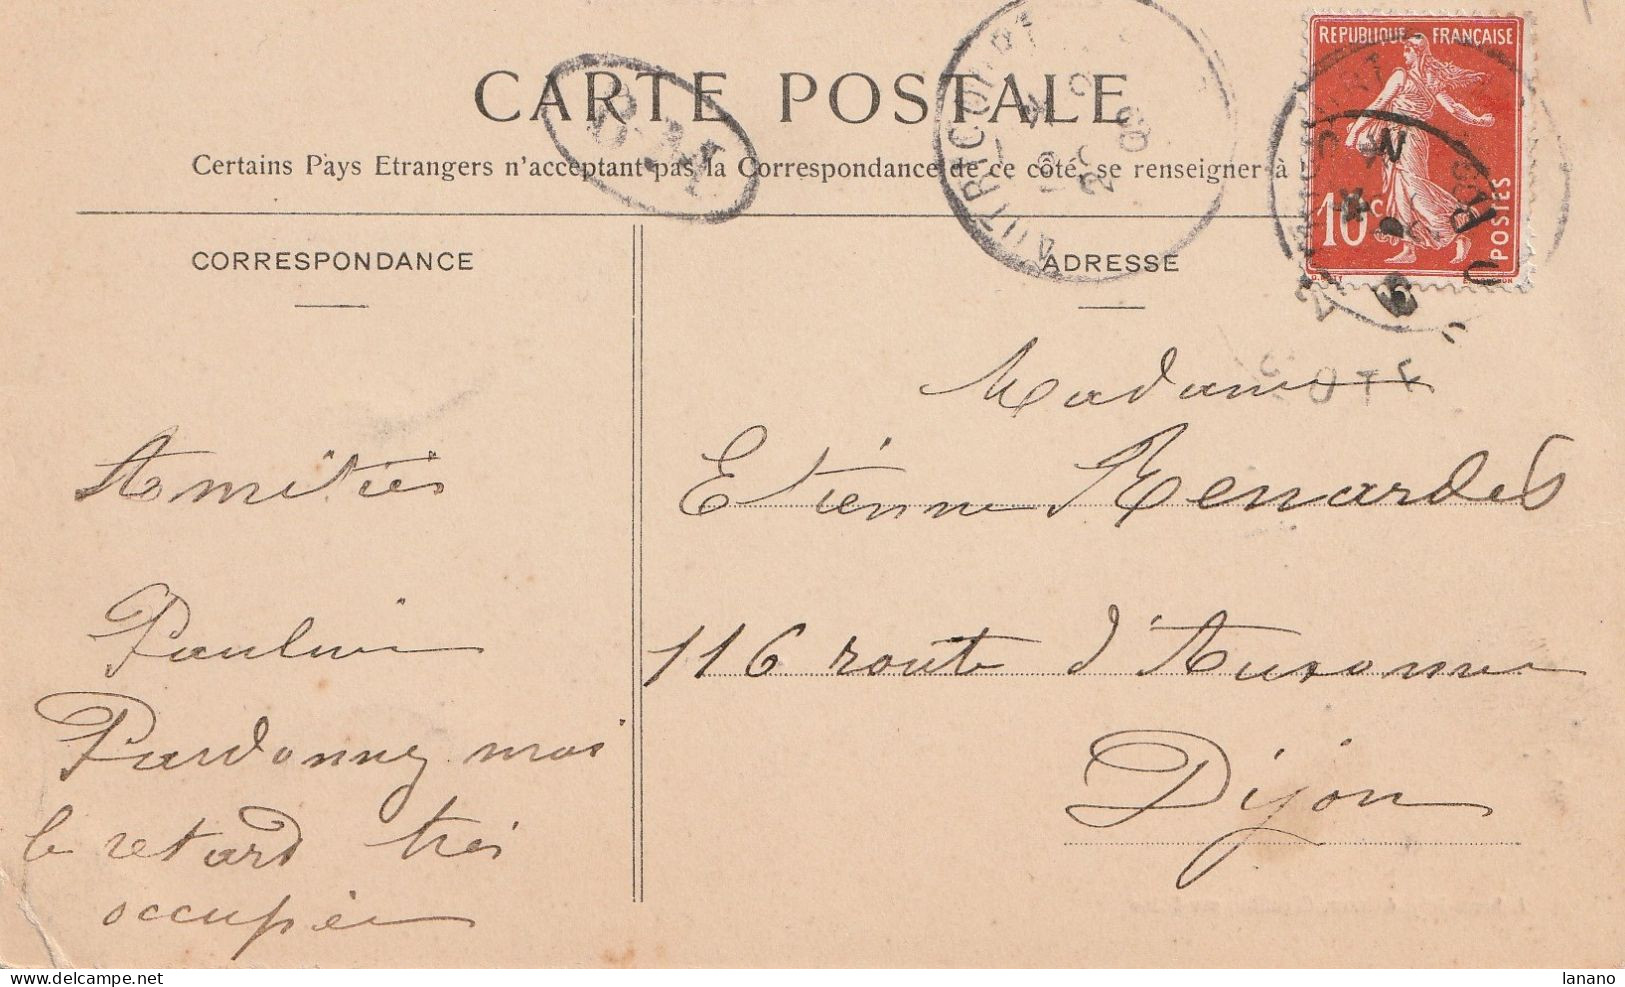 CARTE POSTALE
Certains Pays Etrangers n'acceptant pas la Correspondance de ce côté, se renseigner à
CORRESPONDANCE
ADRESSE
REPUBLIQUE FRANÇAISE
10 c
POSTES
AUTRICOURT
Madame
Etienne
116 route d'Auxonne
Dijon
Amitiés
Pauline
Pardonnez moi
le retard très
occupée
lanano